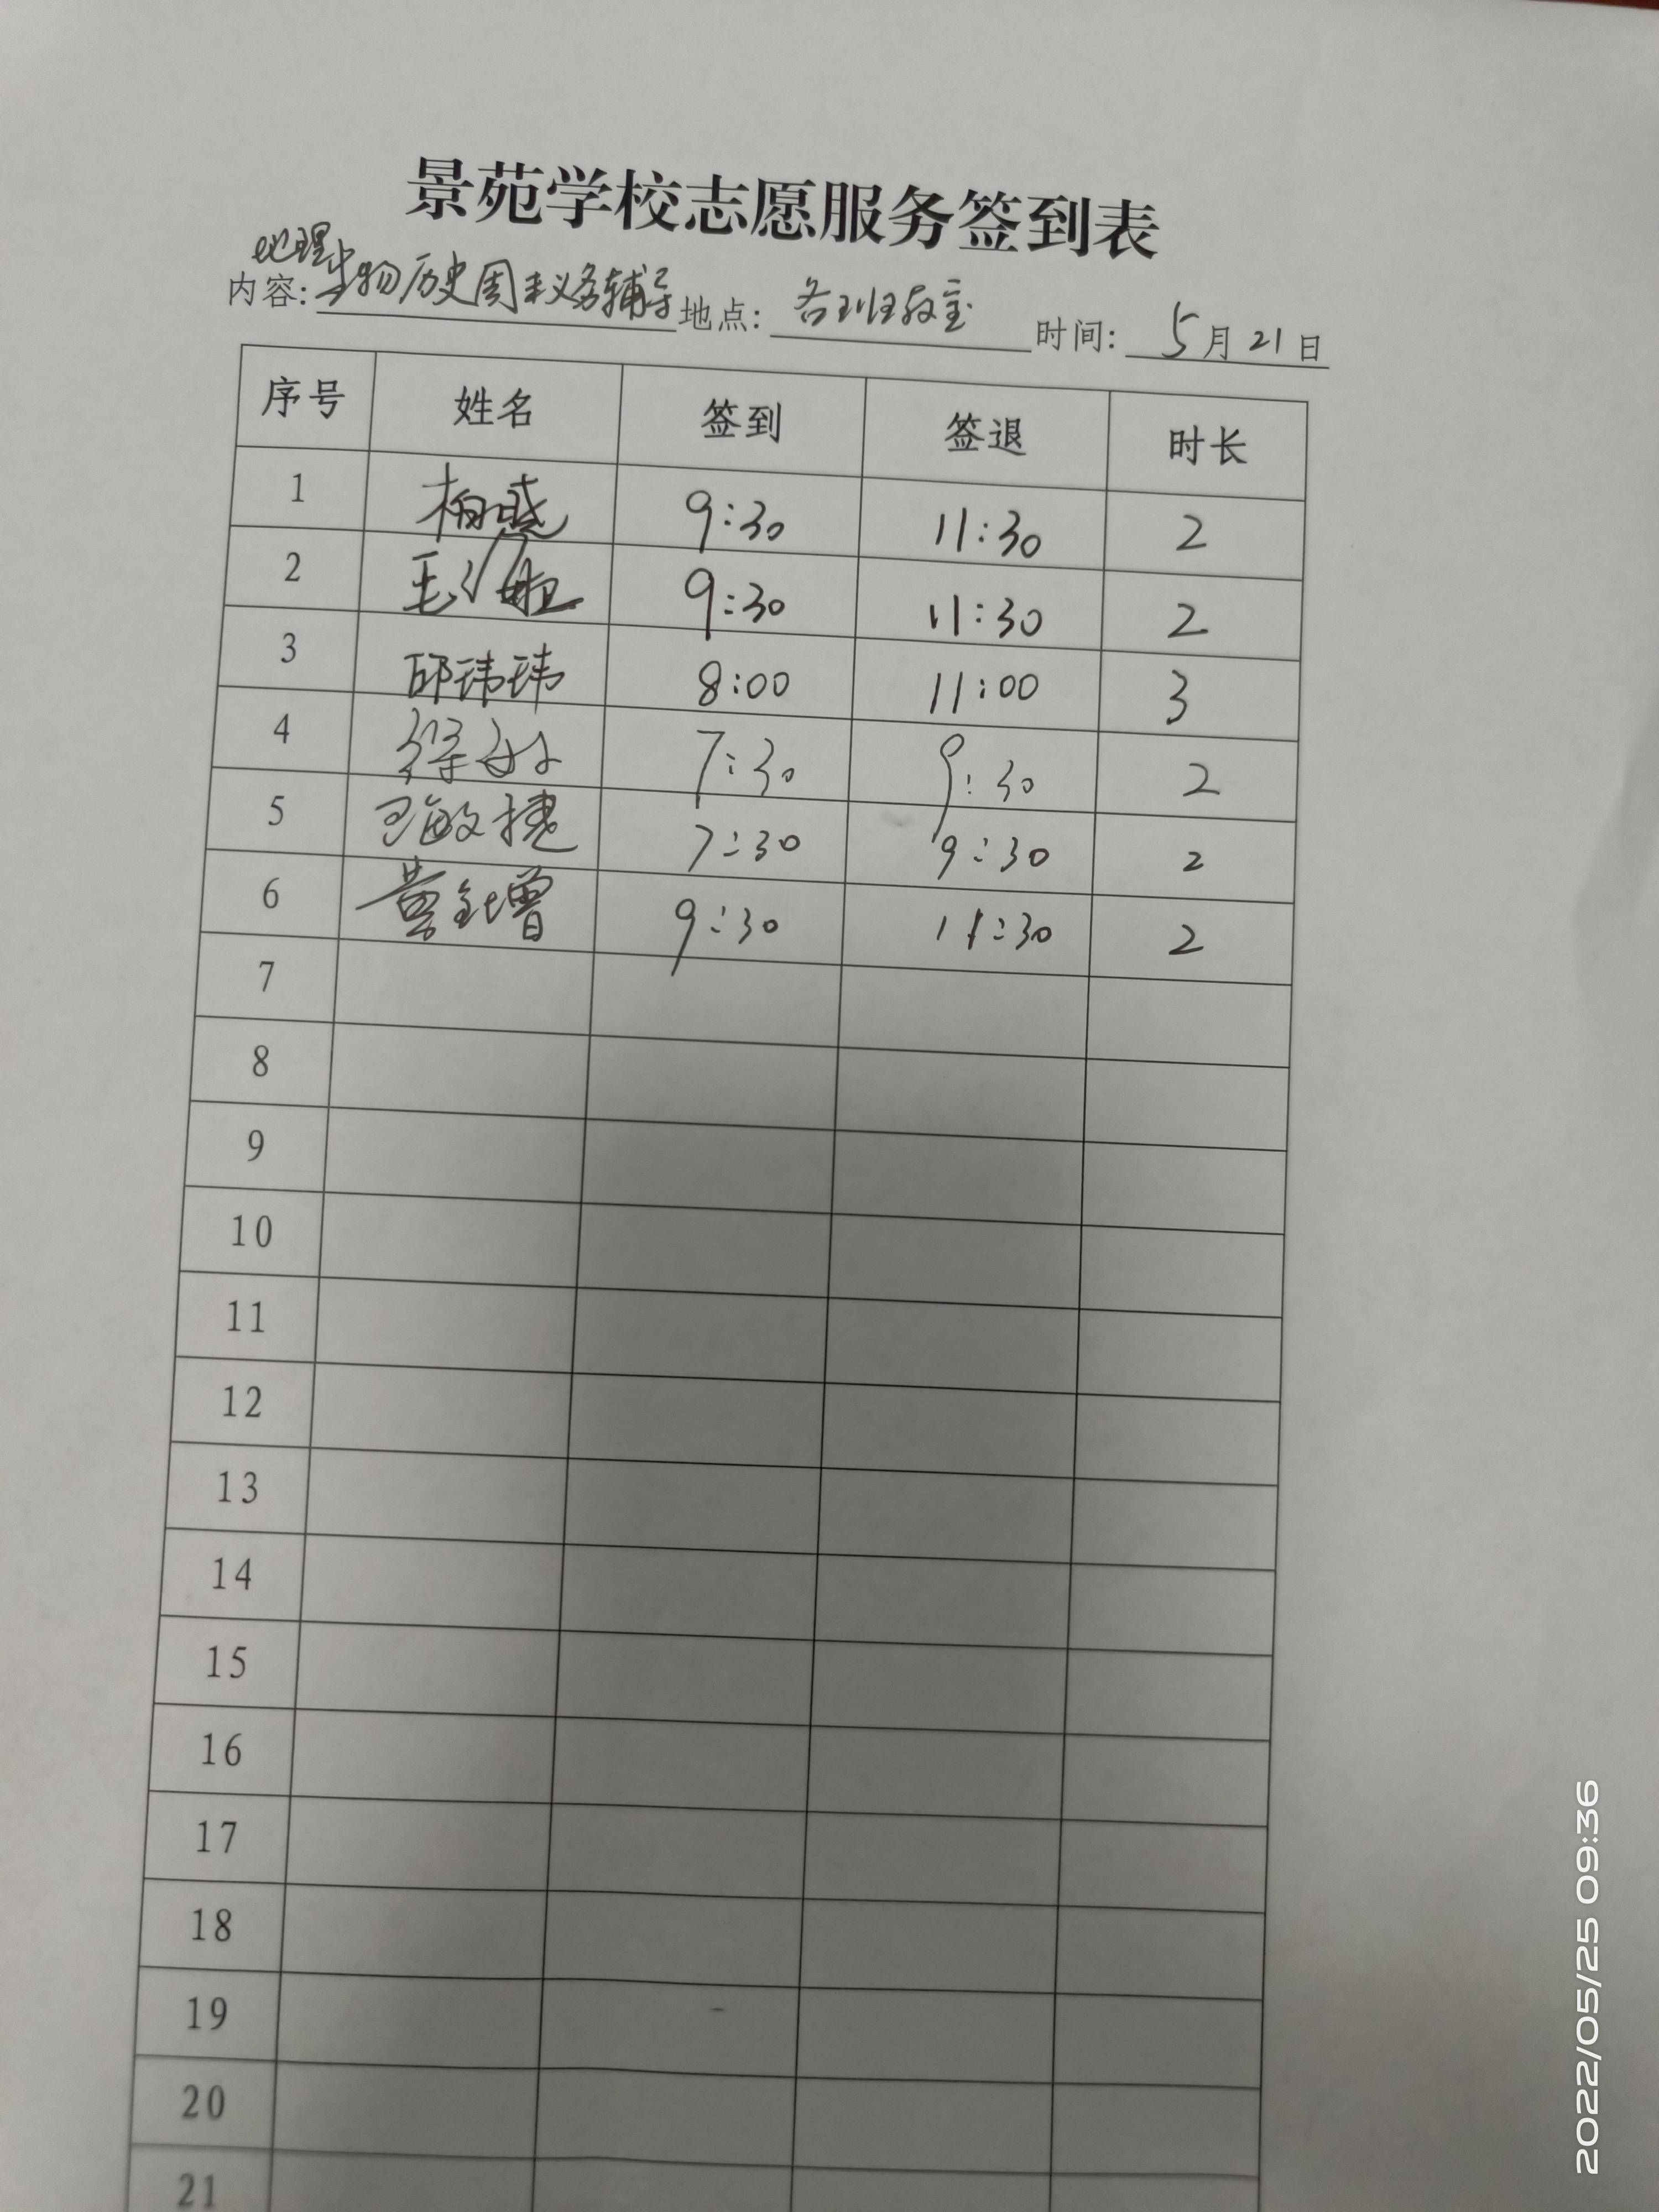 景苑学校志愿服务签到表
地理
内容: 生物历史周末义务辅导 地点: 各班教室 时间: 5月21日
序号 姓名 签到 签退 时长
1 9:30 11:30 2
2 王 9:30 11:30 2
3 邱玮玮 8:00 11:00 3
4 7:30 9:30 2
5 敏捷 7:30 9:30 2
6 黄 增 9:30 11:30 2
7
8
9
10
11
12
13
14
15
16
17
18
19
20
21
2022/05/25 09:36